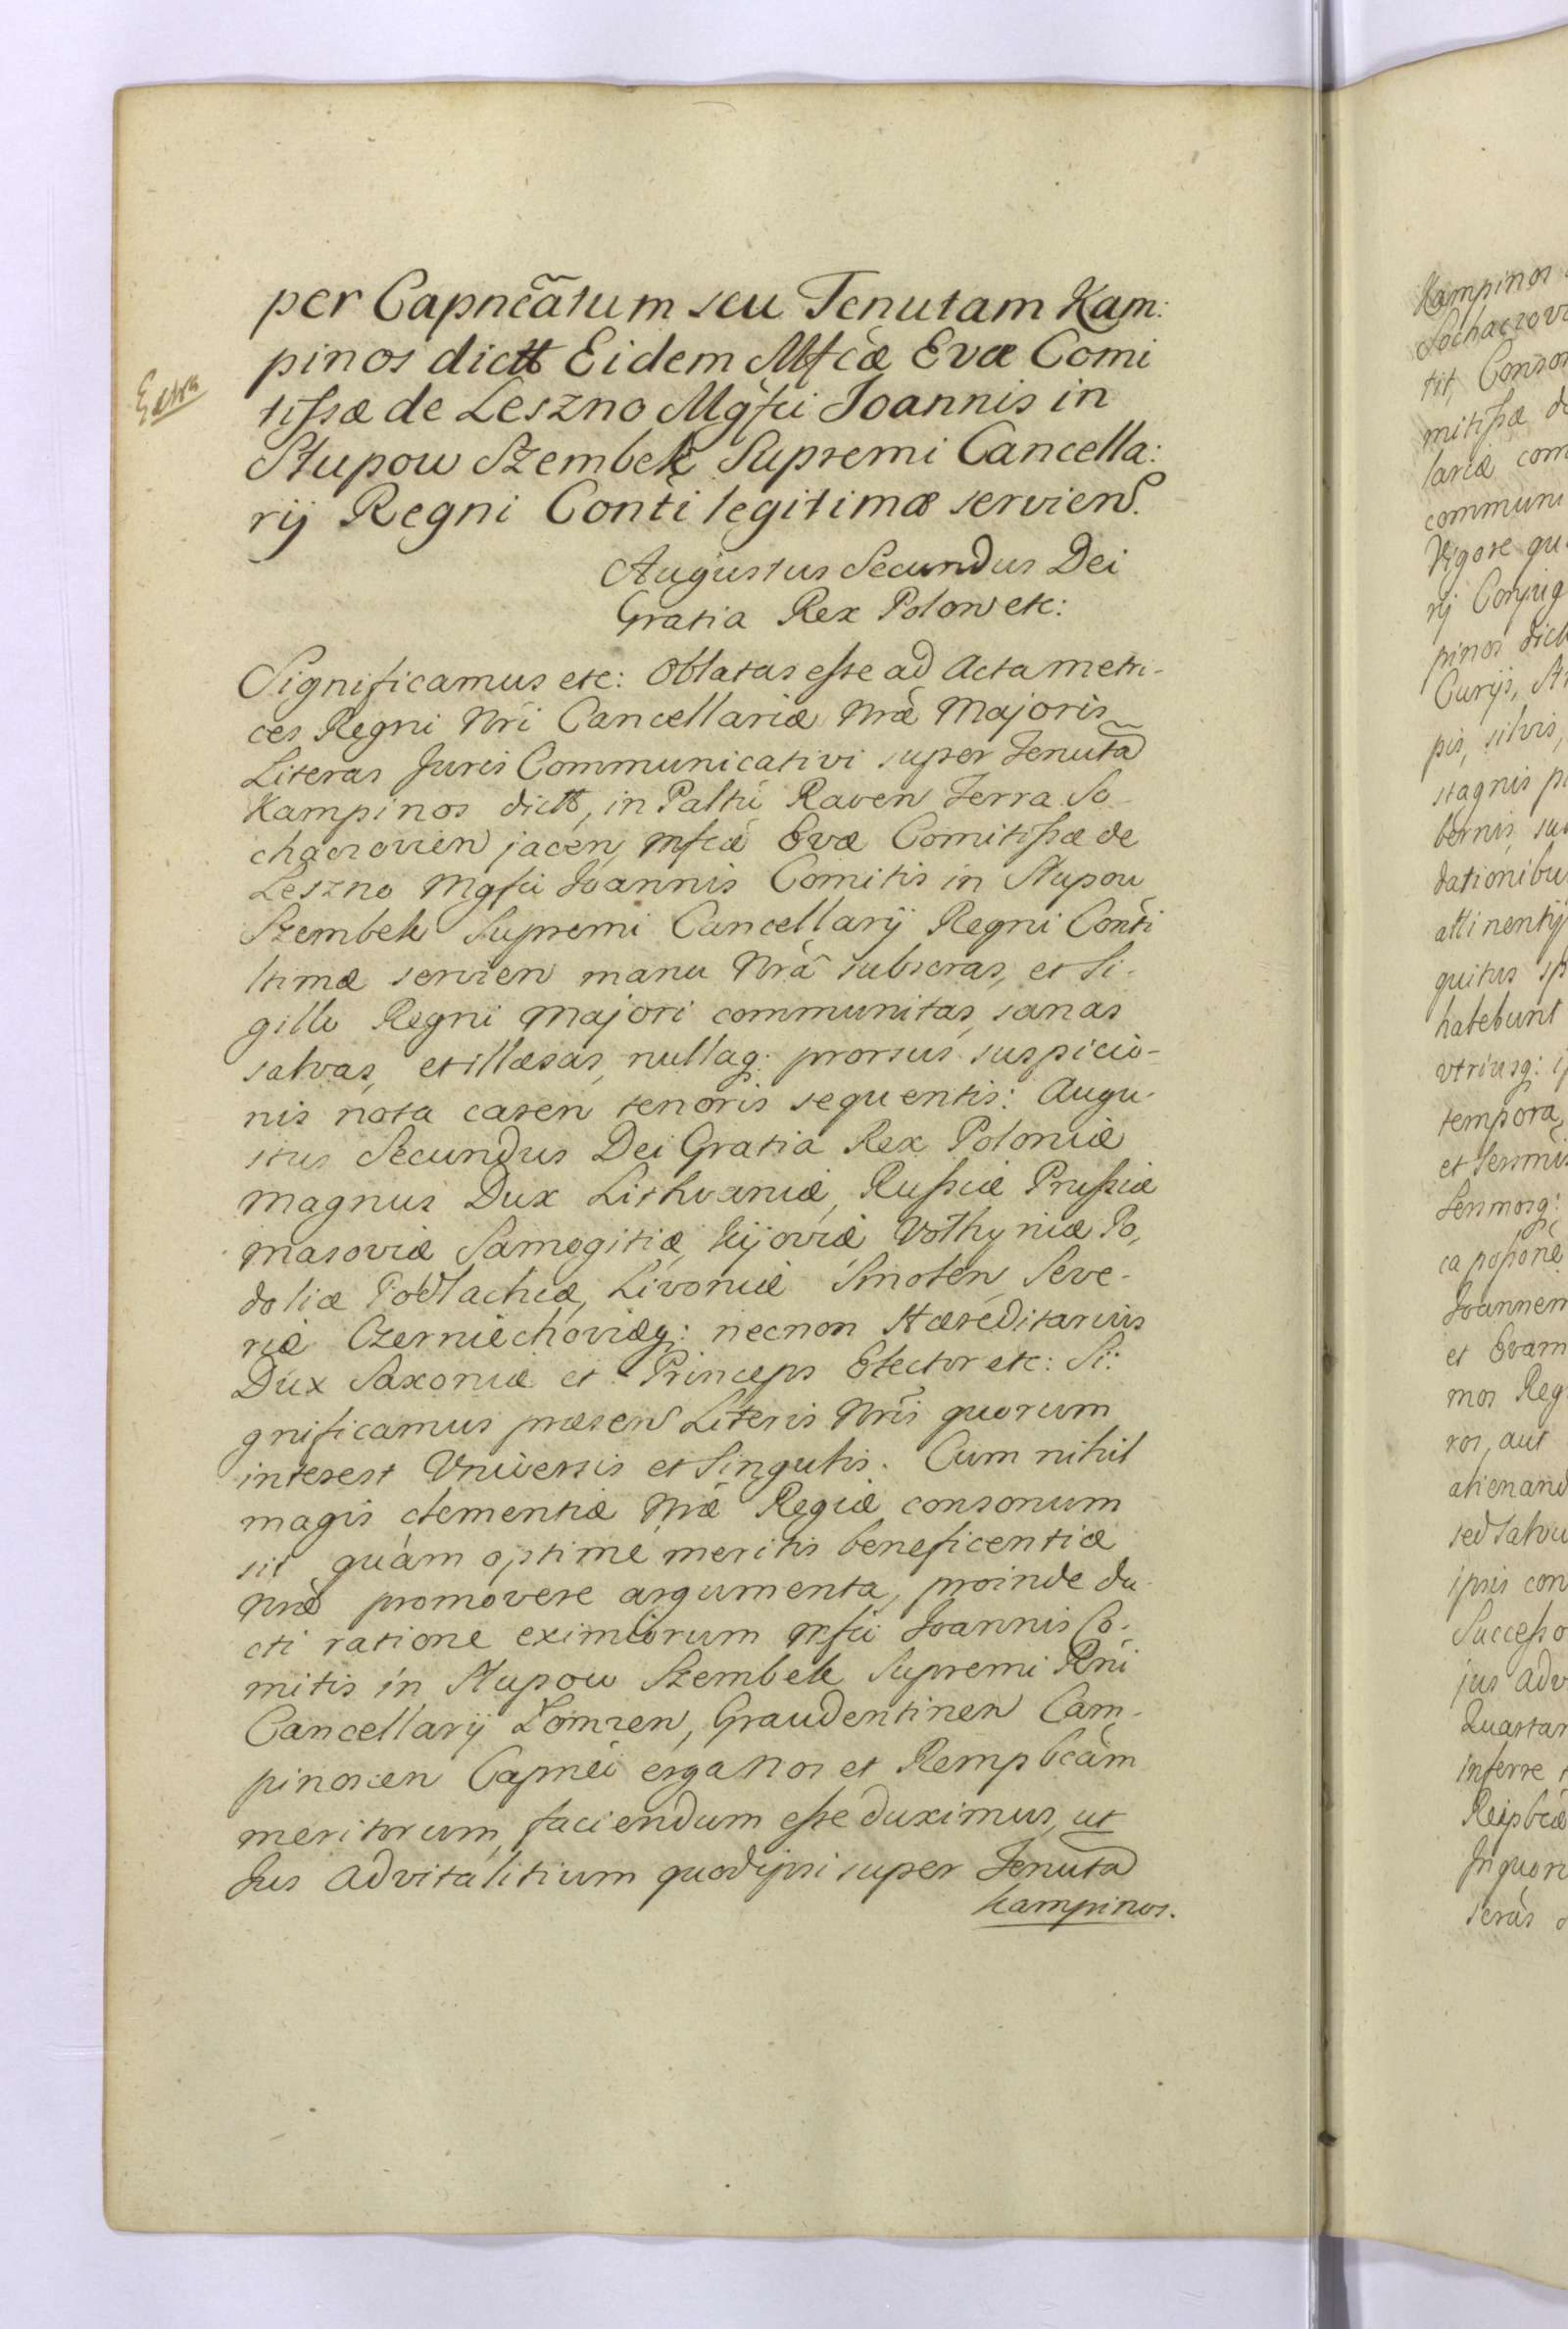 per Capneãtum seu Tenutam Kam:
pinos dictt Eidem Mfcæ Evæ Comi
tissæ de Leszno Mgfci Joannis in
Słupow Szembek Supremi Cancella:
rij Regni Conti legitimæ servien.
Extra
Augustus Secundus Dei
Gratia Rex Polon etc:
Significamus etc: Oblatas esse ad Acta metri-
ces Regni Nri Cancellariæ Nræ Majoris
Literas Juris Communicativi super Tenuta
Kampinos dictt, in Paltu Raven Terra So
chaczovien jacen, Mfcæ Evæ Comitissæ de
Leszno Mgfci Joannis Comitis in Słupow
Szembek Supremi Cancellarij Regni Conti
ltimæ servien manu Nra subscras, et Si-
gillo Regni Majori communitas, sanas
salvas, et illæsas, nullaq: prorsus suspicio-
nis nota caren tenoris sequentis: Augu-
stus Secundus Dei Gratia Rex Poloniæ
Magnus Dux Lithvaniæ, Russiæ Prussiæ
Masoviæ Samogitiæ, Kijoviæ Volhyniæ Po,
doliæ Podlachiæ, Livoniæ Smolen, Seve-
riæ Czerniechoviæq: necnon Hæreditarius
Dux Saxoniæ et Princeps Elector etc: Si:
gnificamus præsen Literis Nris quorum
interest Vniversis et Singulis. Cum nihil
magis clementiæ Nræ Regiæ consonum
sit quàm optimè meritis beneficentiæ
Nræ promovere argumenta, proinde du-
cti ratione eximiorum Mfci Joannis Co-
mitis in Słupow Szembek Supremi Rni
Cancellarij Łomzen, Graudentinen Cam-
pinoscen Capnei erga Nos et Rempbcam
meritorum, faciendum esse duximus, ut
Jus advitalitium quod ipsi super Tenuta
Kampinos.
Kampinos
Sochaczovi
tit, Conso
mitissæ de
lariæ com
communi
Vigore qu
rij Conjug
pinos dict
Curijs,
pis, silvis,
stagnis
bernis,
dationibu
attinentij
quitus
habebunt
vtriusq:
tempora,
et
ca
Joannem
et Evam
mos Reg
ros, aut
alienand
sed salvu
ipsis con
Successo
jus adv
Quartan
inferre
Reipbcæ
In quoru